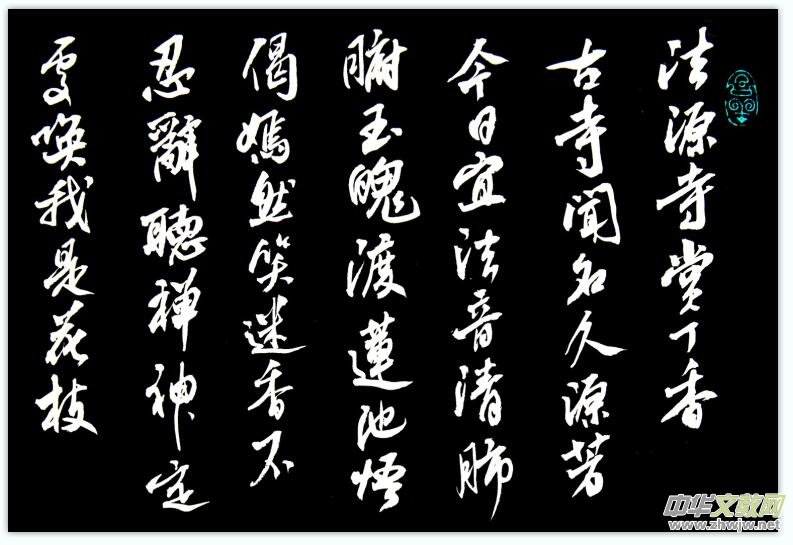 法源寺赏丁香
古寺聞名久源著
今日宜法音清肺
腑玉魄渡蓮池悟
偈嫣然笑迷香不
忍辭聽禪神定
處唤我是花枝
中华文教网
www.zhwjw.net